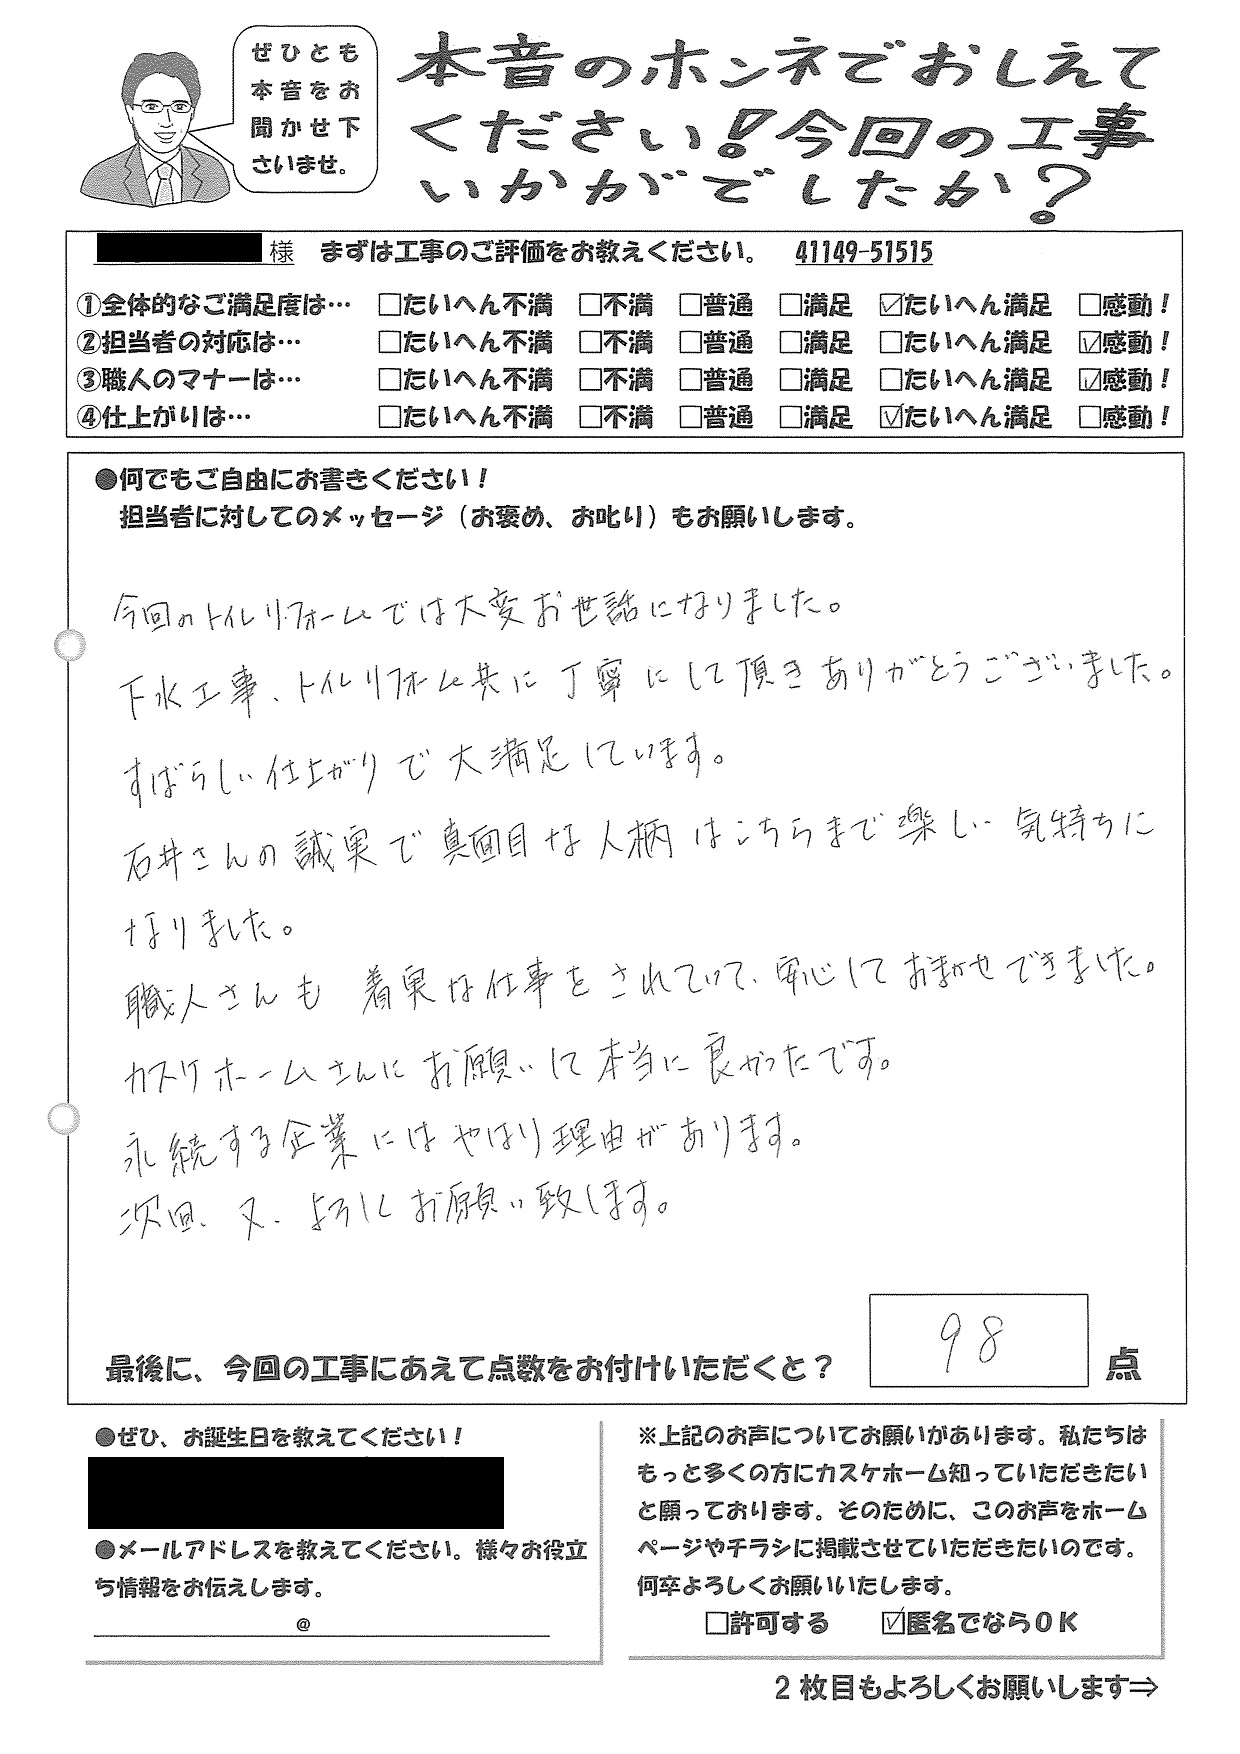 ぜひとも
本音をお
聞かせ下
さいませ。
本音のホンネでおしえて
ください!今回の工事
いかがでしたか?
様 まずは工事のご評価をお教えください。 41149-51515
①全体的なご満足度は… □たいへん不満 □不満 □普通 □満足 ☑たいへん満足 □感動！
②担当者の対応は… □たいへん不満 □不満 □普通 □満足 □たいへん満足 ☑感動！
③職人のマナーは… □たいへん不満 □不満 □普通 □満足 □たいへん満足 ☑感動！
④仕上がりは… □たいへん不満 □不満 □普通 □満足 ☑たいへん満足 □感動！
●何でもご自由にお書きください！
担当者に対してのメッセージ（お褒め、お叱り）もお願いします。
今回のトイレリフォームでは大変お世話になりました。
下水工事、トイレリフォーム共に丁寧にして頂きありがとうございました。
すばらしい仕上がりで大満足しています。
石井さんの誠実で真面目な人柄はこちらまで楽しい気持ちに
なりました。
職人さんも着実な仕事をされていて、安心しておまかせできました。
カスケホームさんにお願いして本当に良かったです。
永続する企業にはやはり理由があります。
次回、又、よろしくお願い致します。
98
最後に、今回の工事にあえて点数をお付けいただくと？ 点
●ぜひ、お誕生日を教えてください！
●メールアドレスを教えてください。様々お役立
ち情報をお伝えします。
@
※上記のお声についてお願いがあります。私たちは
もっと多くの方にカスケホーム知っていただきたい
と願っております。そのために、このお声をホーム
ページやチラシに掲載させていただきたいのです。
何卒よろしくお願いいたします。
□許可する ☑匿名でならＯＫ
2 枚目もよろしくお願いします⇒